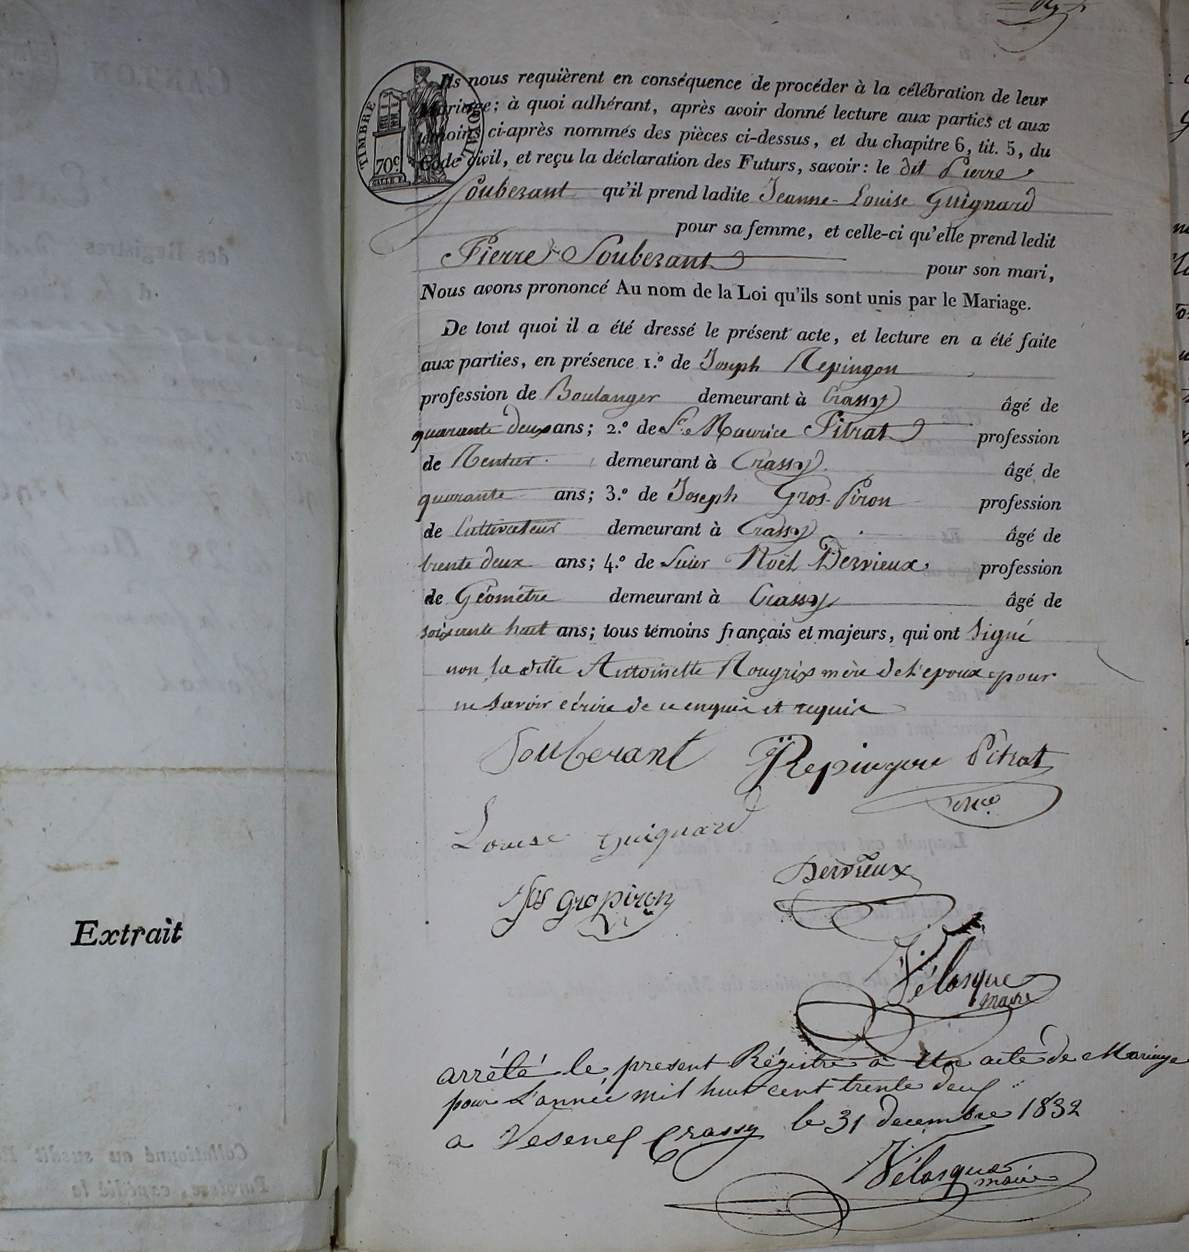 Ils nous requièrent en conséquence de procéder à la célébration de leur
Mariage; à quoi adhérant, après avoir donné lecture aux parties et aux
témoins ci-après nommés des pièces ci-dessus, et du chapitre 6, tit. 5, du
Code civil, et reçu la déclaration des Futurs, savoir: le dit Pierre
Souberant qu'il prend ladite Jeanne-Louise Guignard
pour sa femme, et celle-ci qu'elle prend ledit
Pierre Souberant pour son mari,
Nous avons prononcé Au nom de la Loi qu'ils sont unis par le Mariage.
De tout quoi il a été dressé le présent acte, et lecture en a été faite
aux parties, en présence 1.º de Joseph Repingon
profession de Boulanger demeurant à Crassy âgé de
quarante deux ans; 2.º de Sr. Maurice Pitrat profession
de Rentier demeurant à Crassy âgé de
quarante ans; 3.º de Joseph Gros-Piron profession
de Cultivateur demeurant à Crassy âgé de
trente deux ans; 4.º de Noël Dervieux profession
de Géomètre demeurant à Crassy âgé de
soixante huit ans; tous témoins français et majeurs, qui ont signé
non la ditte Antoinette mère de l'epoux pour
ne savoir écrire de ce enquis et requis
TIMBRE ROYAL
70c
Souberant Repingon Pitrat
Louise Guignard
Dervieux
Jos gropiron
Vélasque
maire
arrêté le present Régistre a Un acte de Mariage
pour L'année mil huit cent trente deux
a Vesenex Crassy le 31 decembre 1832
Vélasque
maire
Extrait